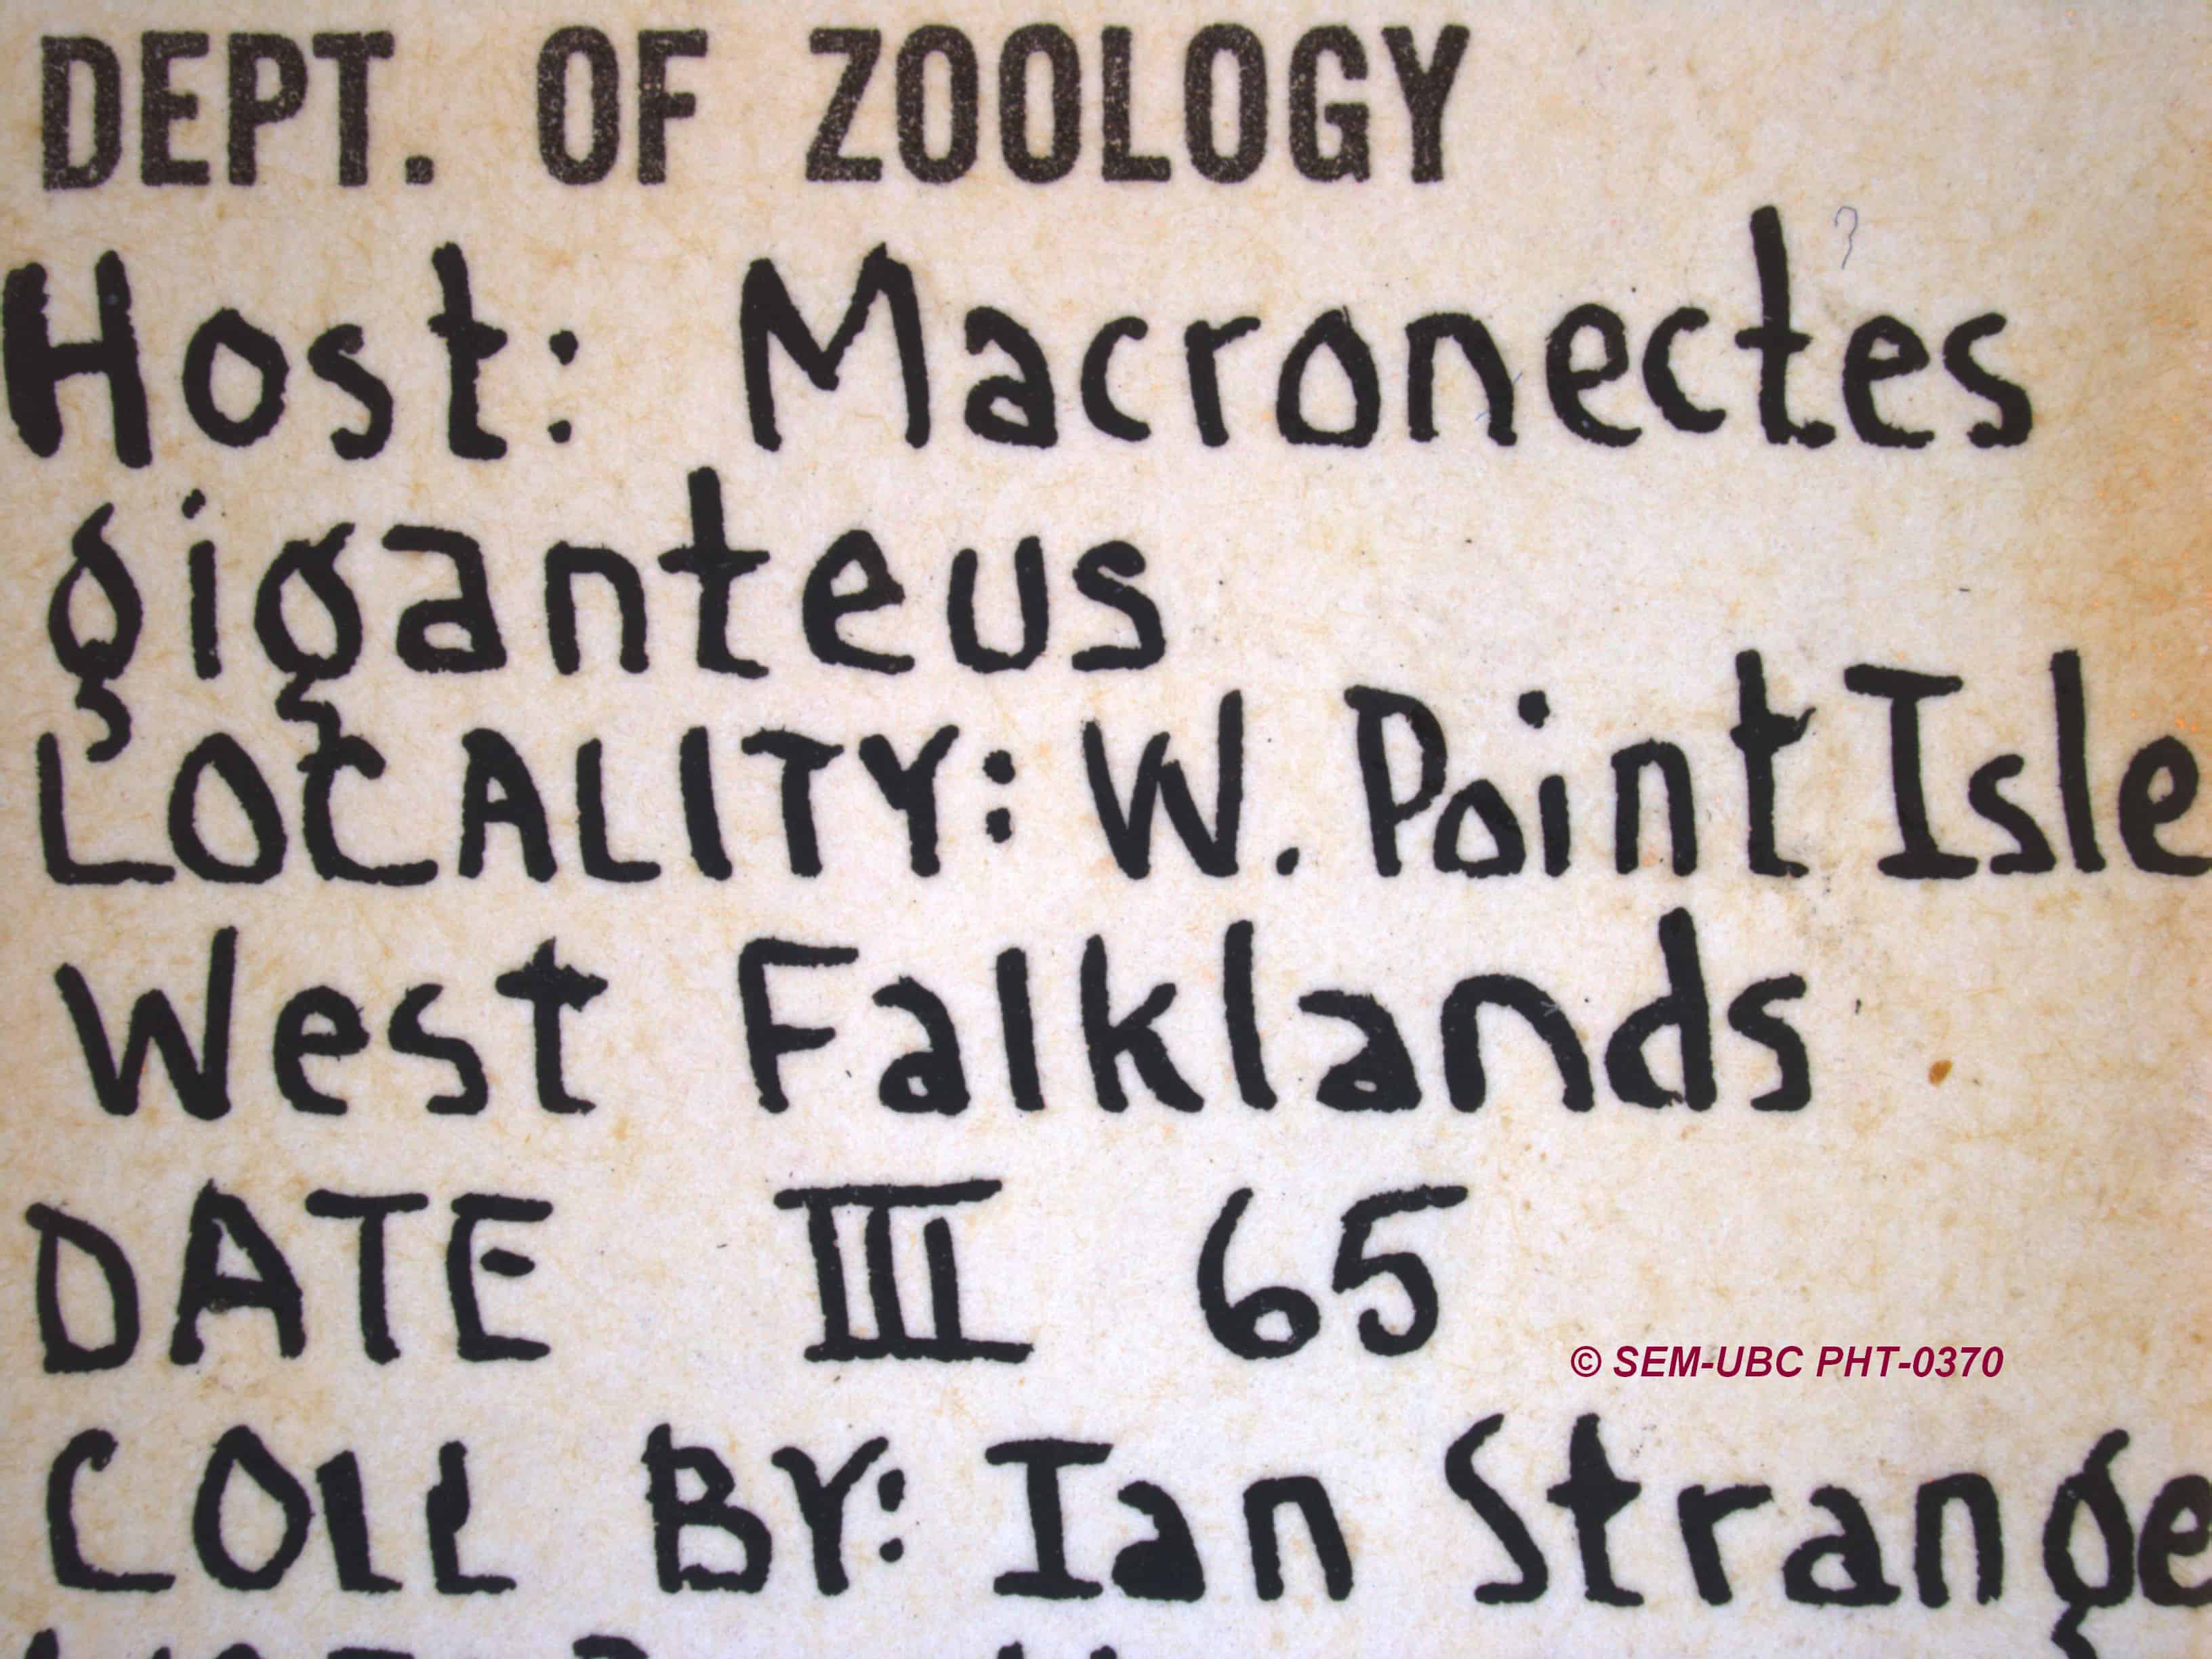 DEPT. OF ZOOLOGY
Host: Macronectes
giganteus
LOCALITY: W. Point Isle
West Falklands
DATE III 65
© SEM-UBC PHT-0370
COLL BY: Ian Strange